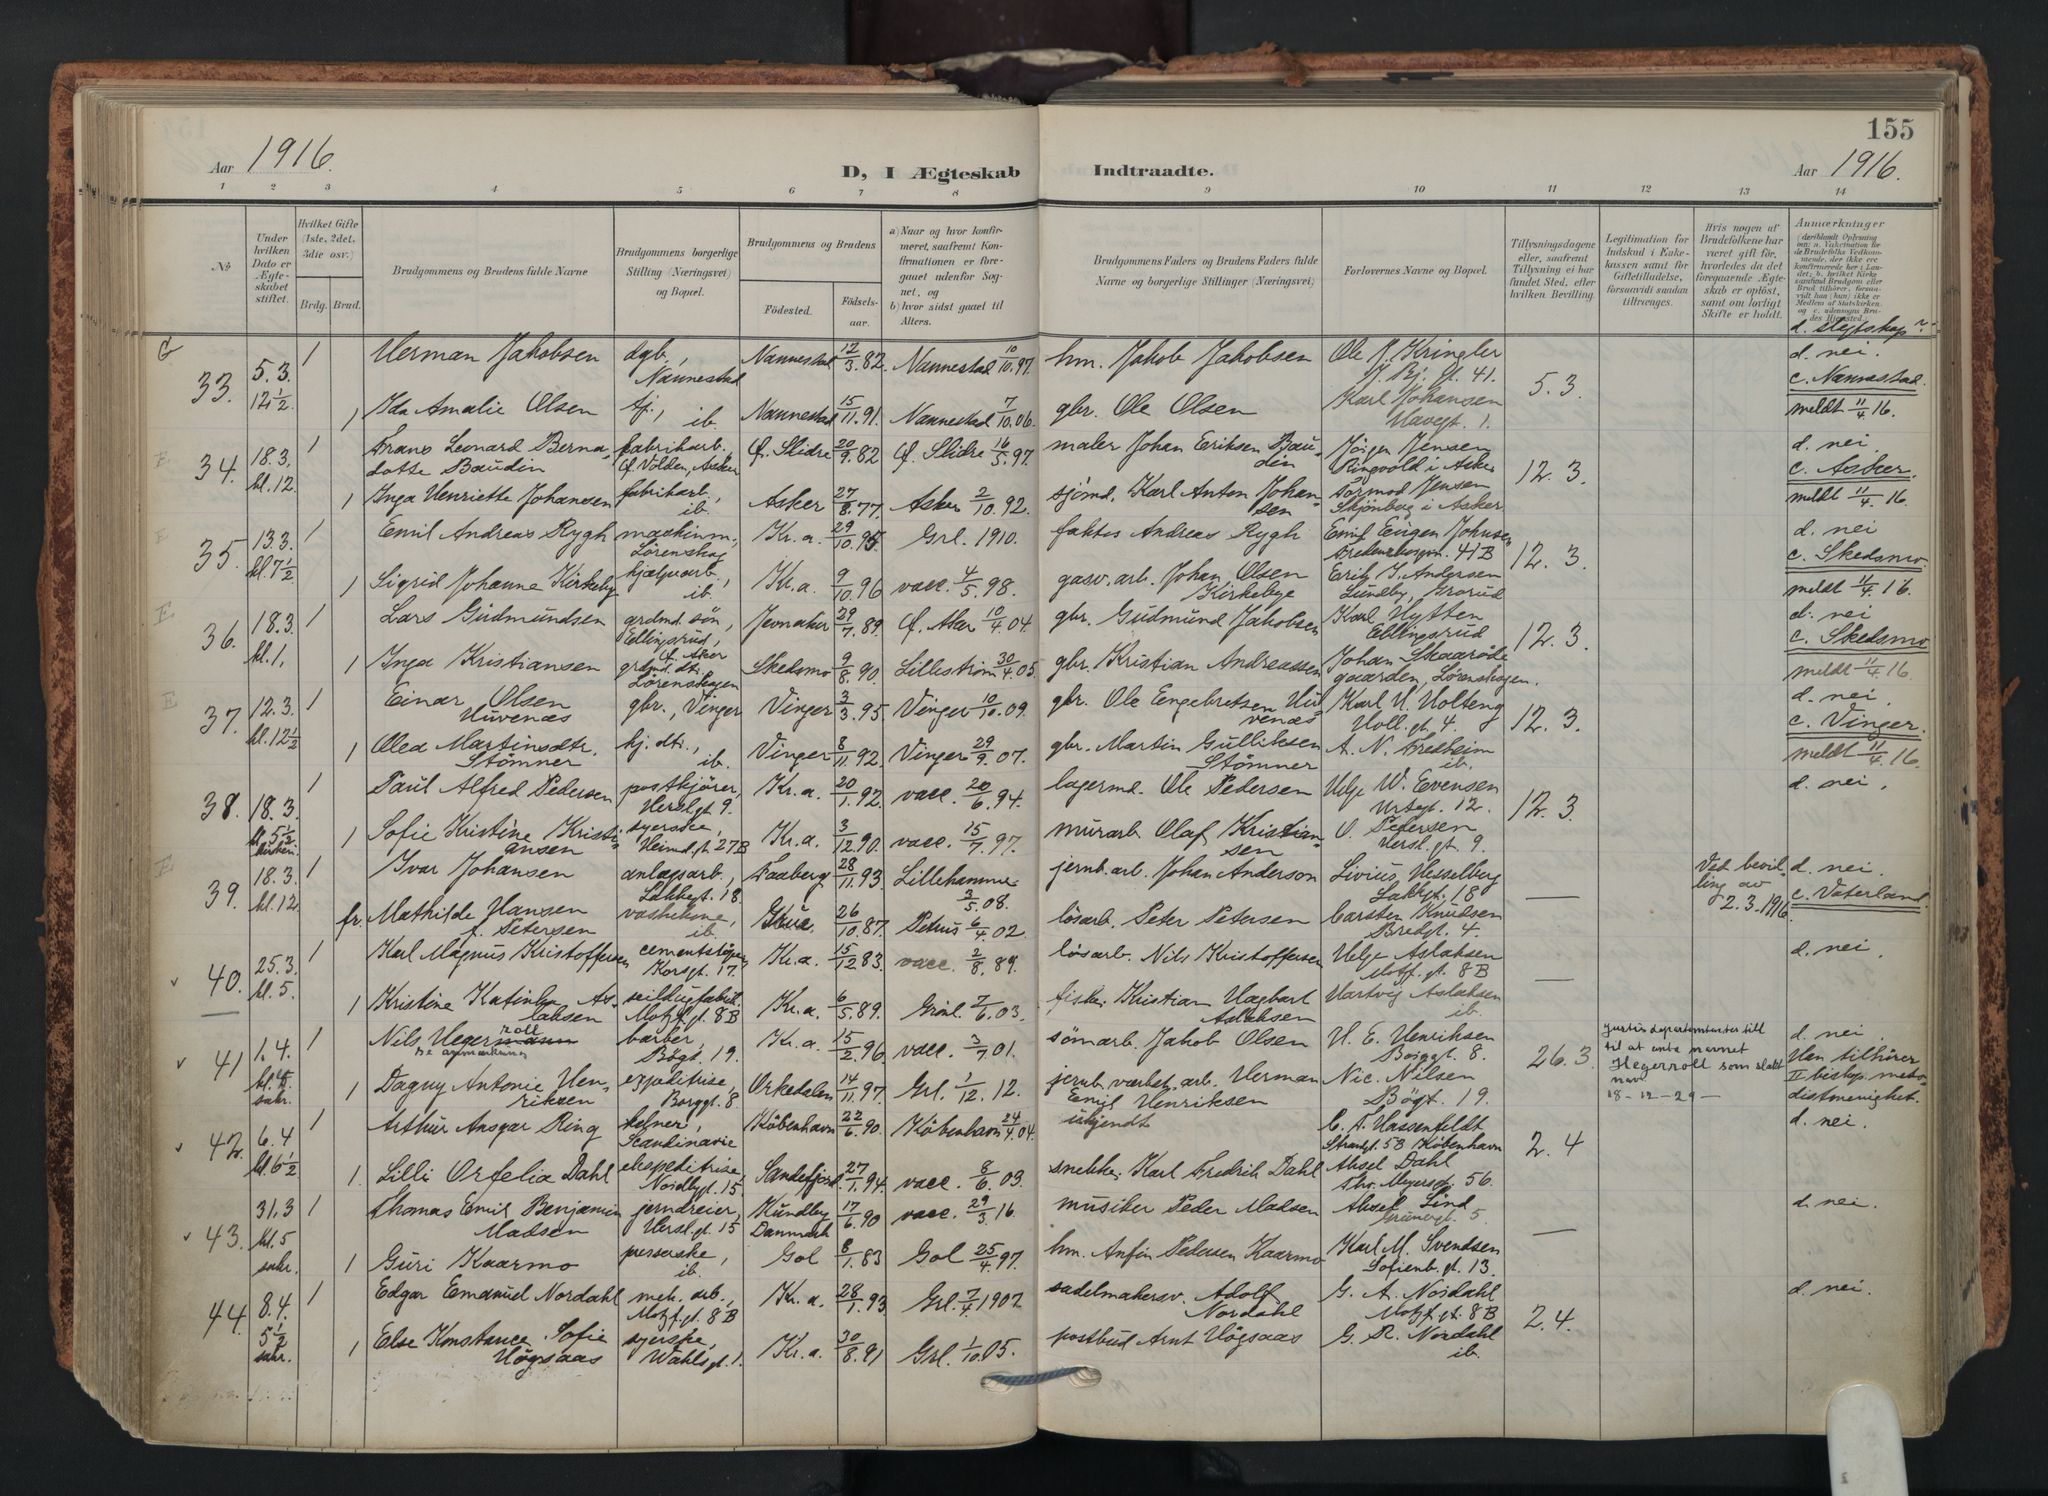 155
Aar 1916.
D, I Ægteskab Indtraadte.
Aar 1916.
1 2 3 4 5 6 7 8 9 10 11 12 13 14
No
Under hvilken Dato er Ægteskabet stiftet.
Hvilket Gifte (1ste, 2det, 3die osv.)
Brdg. Brud.
Brudgommens og Brudens fulde Navne
Brudgommens borgerlige Stilling (Næringsvei) og Bopæl.
Brudgommens og Brudens
Fødested. Fødselsaar.
a) Naar og hvor konfirmeret, saafremt Konfirmationen er foregaaet udenfor Sognet, og
b) hvor sidst gaaet til Alters.
Brudgommens Faders og Brudens Faders fulde Navne og borgerlige Stillinger (Næringsvei)
Forlovernes Navne og Bopæl.
Tillysningsdagene eller, saafremt Tillysning ei har fundet Sted, efter hvilken Bevilling.
Legitimation for Indskud i Enkekassen samt for Giftetilladelse, forsaavidt saadan tiltrænges.
Hvis nogen af Brudefolkene har været gift før, hvorledes da det foregaaende Ægteskab er opløst, samt om lovligt Skifte er holdt.
Anmærkninger
d. slegtskap
G
33. 5.3. 12 1/2 1 Herman Jakobsen dgb., Nannestad Nannestad 12/3.82. Nannestad 10/10.97. hm. Jakob Jakobsen Ole J. Kringler 5.3. d. nei.
J. Bj. gt. 41.
c. Nannestad.
1 Ida Amalie Olsen tj., ib. Nannestad 15/11.91. Nannestad 7/10.06. gbr. Ole Olsen Karl Johansen
Havegt. 1.
meldt 11/4 16.
34. 18.3. kl.12. 1 Frans Leonard Bernadotte Baudin fabrikarb. Ø. Slidre 20/9.82 Ø. Slidre 16/5.97. maler Johan Eriksen Baudin Jörgen Jensen 12.3. d. nei
Ringvold i Asker
c. Asker.
1 Inga Henriette Johansen fabrikarb., ib. Asker 27/8.77. Asker 2/10.92. sjömd. Karl Anton Johansen Tormod Jensen
i Asker
meldt 11/4 16.
35. 13.3. kl.7 1/2 1 Emil Andreas Rygh maskinm., Lörenskog Kr.a. 29/10.95. Grl. 1910. Andreas Rygh Emil Eugen Johnsen 12.3. d. nei
41B
c. Skedsmo.
1 Sigrid Johanne Kirkeby hjælpearb., ib. Kr.a. 9/10.96 vacc. 4/5.98. gasv. arb. Johan Olsen Kirkebye Erik J. Andersen
Lundby, Grorud
meldt 11/4 16.
36. 18.3. kl.1. 1 Lars Gudmundsen grdmd. sön, Ellingsrud, Ø. Aker Jevnaker 29/7.89. Ø. Aker 10/4.04. gbr. Gudmund Jakobsen Karl Hytten 12.3 d. nei
Ellingsrud
c. Skedsmo
1 Inga Kristiansen grdmd. dtr. Lörenskogen Skedsmo 9/8.90. Lilleström 30/4.05. gbr. Kristian Andreassen Johan Skaaröde
gaarden, Lörenskogen.
meldt 11/4 16.
37. 12.3. kl.12 1/2 1 Einar Olsen Huvenæs gbr., Vinger Vinger 3/3.95 Vinger 10/10.09. gbr. Ole Engebretsen Huvenæs Karl H. Holteng 12.3. d. nei.
Holl. gt. 4.
c. Vinger.
1 Olea Martinsdtr. Stömner hj. dtr., ib. Vinger 8/11.92. Vinger 29/9.07. gbr. Martin Gulliksen Stömner A. N. Fredheim
ib.
meldt 11/4 16.
38. 18.3. kl.5 1/2 1 Paul Alfred Pedersen postkjörer, Herslgt 9. Kr.a. 20/1.92. vacc. 20/6.94. lagermd. Ole Pedersen Helge W. Evensen 12.3. d. nei.
Urtegt. 12.
1 Sofie Kristine Kristiansen syerske, Heimd. gt. 27B Kr.a. 3/12.90. vacc. 15/7.97. murarb. Olaf Kristiansen O. Petersen
Hersl. gt. 9.
39. 18.3. kl.12. 1 Ivar Johansen anlægsarb., Lakkegt. 18. Faaberg 28/11.93 Lillehammer 3/5.08. jernb. arb. Johan Anderson Livius Hesselberg Ved bevilling av 2.3.1916 d. nei.
Lakkegt. 18
c. Vaterland.
fr. Mathilde Hansen f. Petersen vaskekone, ib. 26/10.87. Petrus 6/4.02. lösarb. Peter Petersen Carsten Knudsen
Bredgt. 4.
40. 25.3. kl.5. 1 Karl Magnus Kristoffersen cementstöper Korsgt. 17. Kr.a. 15/12.83. vacc. 2/8.89. lösarb. Nils Kristoffersen Helge Aslaksen d. nei.
Motzf. gt. 8B
1 Kristine Katinka Aslaksen seildugfabrik. Motzf. gt. 8B Kr.a. 6/5.89. Grönl. 7/6.03. fisker Kristian Hagbart Aslaksen Hartvig Aslaksen
ib.
41 1.4. 1 Nils Hegermann roll barber, Bögt. 19. Kr.a. 15/2.96 vacc. 3/7.01. sömarb. Jakob Olsen H. E. Henriksen 26.3. d. nei.
se anmerkning
Borggt. 8.
Justisdepartementets till til at anta navnet Hegerroll som slektnavn 18-12-29-
Hun tilhörer II biskop. metodistmenighet.
1 Dagny Antonie Henriksen expeditrise, Borggt. 8 Orkedalen 14/11.97. Grl. 1/12.12. jernb. værkst. arb. Herman Emil Henriksen Nic. Nilsen
Bögt. 19.
42. 6.4 kl.6 1/2 1 Arthur Ansgar Ring kelner, Scandinavie Köbenhavn 22/6.90. Köbenhavn 24/4.04. ukjendt C. F. Hassenfeldt 2.4 d. nei.
Strandgt. 5B Köbenhavn
1. Lilli Orfelia Dahl ekspeditrise, Nordbygt. 15 Sandefjord 27/1.94. vacc. 8/6.03. snekker Karl Fredrik Dahl Aksel Dahl
Thv. Meyersgt. 56.
43. 31.3 kl.5 sakr. 1 Thomas Emil Benjamin Madsen jerndreier, Hersl. gt. 15 Kundby Danmark 17/6.90 vacc. 29/3.16. musiker Peder Madsen Aksel Lind d. nei
Grünergt. 5.
1 Guri Kaarmo presserske, ib. Gol 8/1.83 Gol 25/4.97. hm. Anfin Pedersen Kaarmo Karl M. Svendsen
Sofienb. gt. 13.
44. 8.4. 5 1/2 sakr. 1 Edgar Emanuel Nordahl mek. arb., Motzf. gt. 8B Kr.a. 28/1.93. Grl. 7/4.1907. sadelmakersv. Adolf Nordahl G. A. Nordahl 2.4. d. nei.
Motzf. gt. 8B
1 Else Konstance Sofie Högsaas syerske, Wahls gt. 1. Kr.a. 30/8.91 Grl. 1/10.05. postbud Arnt Högsaas G. R. Nordahl
ib.